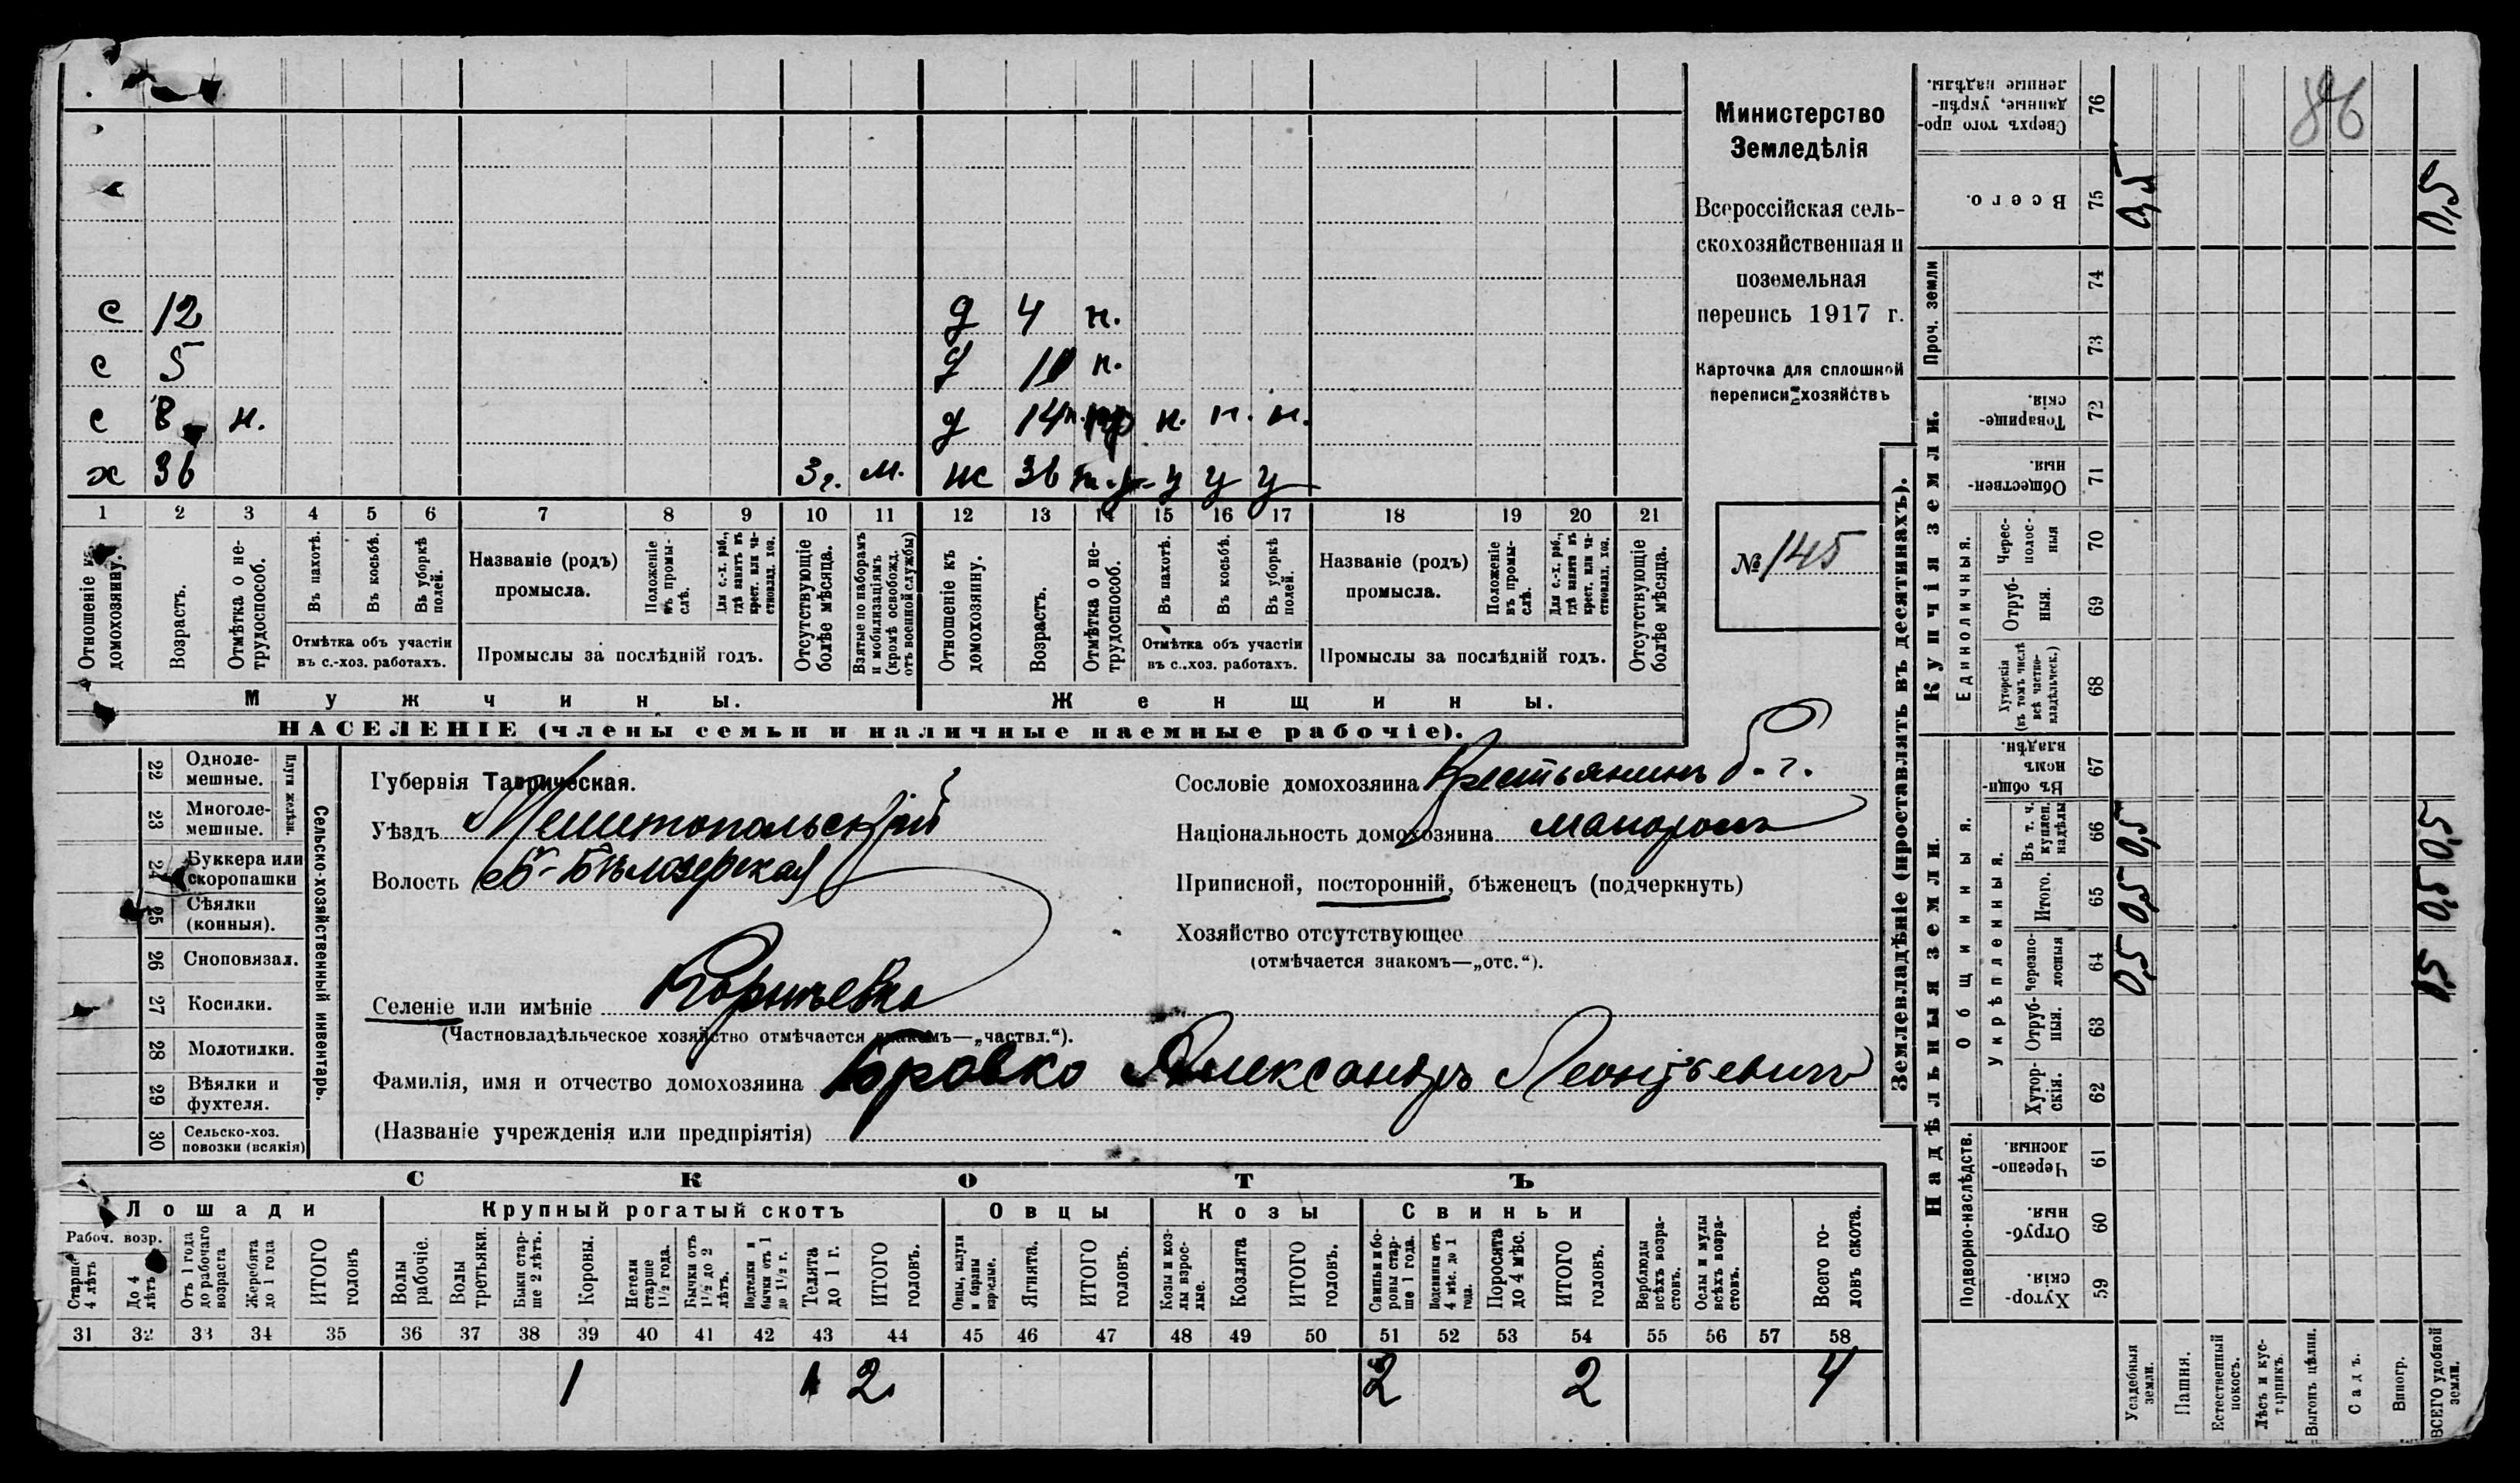 с 12 д 4 н.
с 5 д 11 н.
с 8 н. д 14 н. н. н.
х 36 3 г. м. ж 36 у у у
1 2 3 4 5 6 7 8 9 10 11 12 13 14 15 16 17 18 19 20 21
Отношеніе къ домохозяину.
Возрастъ.
Отмѣтка о не-трудоспособ.
Въ пахотѣ.
Въ косьбѣ.
Въ уборкѣ полей.
Отмѣтка объ участіи
въ с.-хоз. работахъ.
Названіе (родъ)
промысла.
Положеніе въ промы-слѣ.
Для с.-х. раб., гдѣ занятъ въ крест. или ча-стновлад. хоз.
Промыслы за послѣдній годъ.
Отсутствующіе болѣе мѣсяца.
Взятые по наборамъ и мобилизаціямъ (кромѣ освобожд. отъ военной службы)
Отношеніе къ домохозяину.
Возрастъ.
Отмѣтка о не-трудоспособ.
Въ пахотѣ.
Въ косьбѣ.
Въ уборкѣ полей.
Отмѣтка объ участіи
въ с.-хоз. работахъ.
Названіе (родъ)
промысла.
Положеніе въ промы-слѣ.
Для с.-х. раб., гдѣ занятъ въ крест. или ча-стновлад. хоз.
Промыслы за послѣдній годъ.
Отсутствующіе болѣе мѣсяца.
Мужчины. Женщины.
НАСЕЛЕНІЕ (члены семьи и наличные наемные рабочіе).
Министерство
Земледѣлія
Всероссійская сель-
скохозяйственная и
поземельная
перепись 1917 г.
Карточка для сплошной
переписи хозяйствъ
№ 145
22 Одноле-мешные.
23 Многоле-мешные.
Плуги желѣзн.
24 Буккера или скоропашки
25 Сѣялки (конныя).
26 Сноповязал.
27 Косилки.
28 Молотилки.
29 Вѣялки и фухтеля.
30 Сельско-хоз. повозки (всякія)
Сельско-хозяйственный инвентарь.
Губернія Таврическая.
Уѣздъ Мелитопольскій
Волость Б-Бѣлозерская
Селеніе или имѣніе
(Частновладѣльческое хозяйство отмѣчается знакомъ—„частвл.“).
Фамилія, имя и отчество домохозяина Бровко Александръ Леонтьевичъ
(Названіе учрежденія или предпріятія)
Сословіе домохозяина Крестьянинъ
Національность домохозяина малороссъ
Приписной, посторонній, бѣженецъ (подчеркнуть)
Хозяйство отсутствующее
(отмѣчается знакомъ—„отс.“).
СКОТЪ
Лошади Крупный рогатый скотъ Овцы Козы Свиньи
Рабоч. возр.
Старше 4 лѣтъ
До 4 лѣтъ
Отъ 1 года до рабочаго возраста
Жеребята до 1 года
ИТОГО головъ
Волы рабочіе.
Волы третьяки.
Быки стар-ше 2 лѣтъ.
Коровы.
Нетели старше 1 1/2 года.
Бычки отъ 1 1/2 до 2 лѣтъ.
Подтелки и бычки отъ 1 до 1 1/2 г.
Телята до 1 г.
ИТОГО головъ.
Овцы, валухи и бараны взрослые.
Ягнята.
ИТОГО головъ.
Козы и коз-лы взрос-лые.
Козлята
ИТОГО головъ.
Свиньи и бо-ровы стар-ше 1 года.
Подсвинки отъ 4 мѣс. до 1 года.
Поросята до 4 мѣс.
ИТОГО головъ.
Верблюды всѣхъ возра-стовъ.
Ослы и мулы всѣхъ возра-стовъ.
Всего го-ловъ скота.
31 32 33 34 35 36 37 38 39 40 41 42 43 44 45 46 47 48 49 50 51 52 53 54 55 56 57 58
1 1 2 2 2 4
Землевладѣніе (проставлять въ десятинахъ).
Надѣльныя земли. Купчія земли. Проч. земли
Подворно-наслѣдств.
Общинныя.
Укрѣпленныя.
Единоличныя.
59 Хутор-скія.
60 Отруб-ныя.
61 Черезпо-лосныя.
62 Хутор-скія.
63 Отруб-ныя.
64 Черезпо-лосныя 0,5
65 Итого. 0,5 0,5
66 Въ т. ч. куплен. надѣлы 0,5 0,5
67 Въ общи-номъ владѣн.
68 Хуторскія (въ томъ числѣ всѣ частно-владѣльческ.)
69 Отруб-ныя.
70 Черес-полос-ныя
71 Обществен-ныя.
72 Товарище-скія.
73
74
75 Всего. 0,5 0,5
76 Сверхъ того про-данные, укрѣп-ленные надѣлы.
86
Усадебныя земли.
Пашня.
Естественный покосъ.
Лѣсъ и кус-тарникъ.
Выгонъ цѣлин.
Садъ.
Виногр.
ВСЕГО удобной земли.